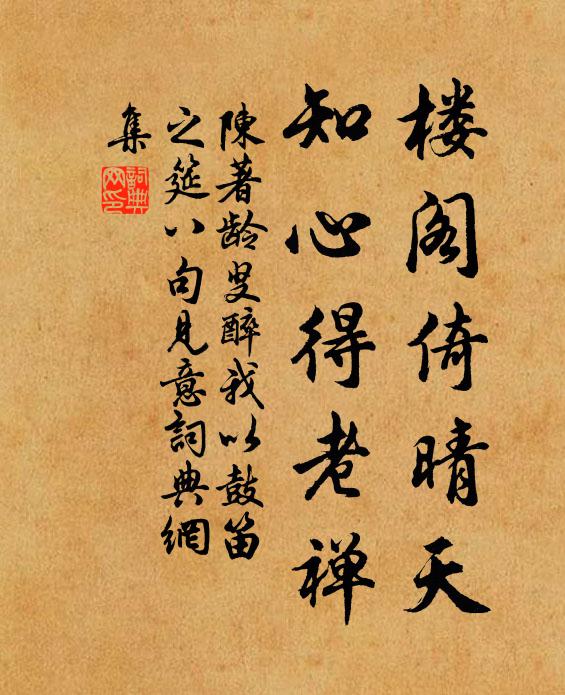 楼阁倚晴天
知心得老禅
陳著龄叟醉我以鼓笛
之筵八句見意詞典網
集
詞典
网印